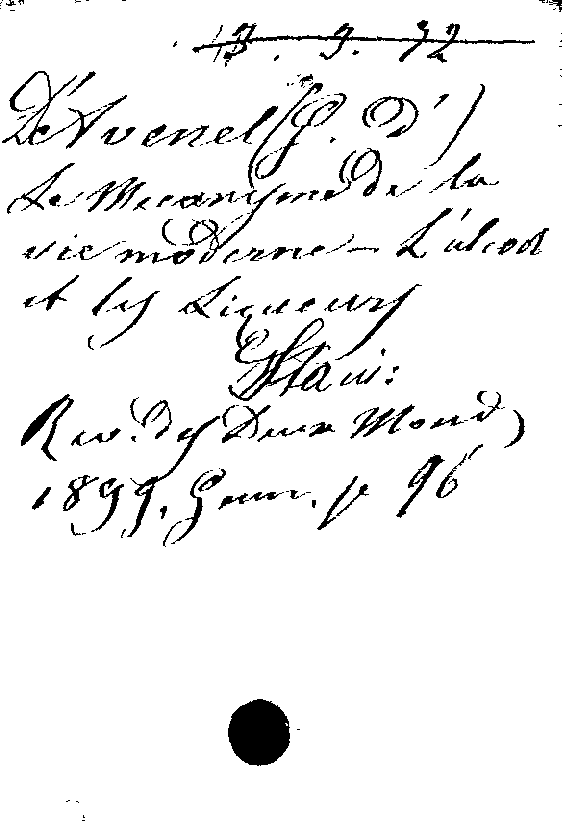 13. 3. 72
D'Avenel (G. D')
Le Mecanisme de la
vie moderne – L'alcool
et les Liqueurs
Rev. des Deux Mond,
1899, Genn. p 96